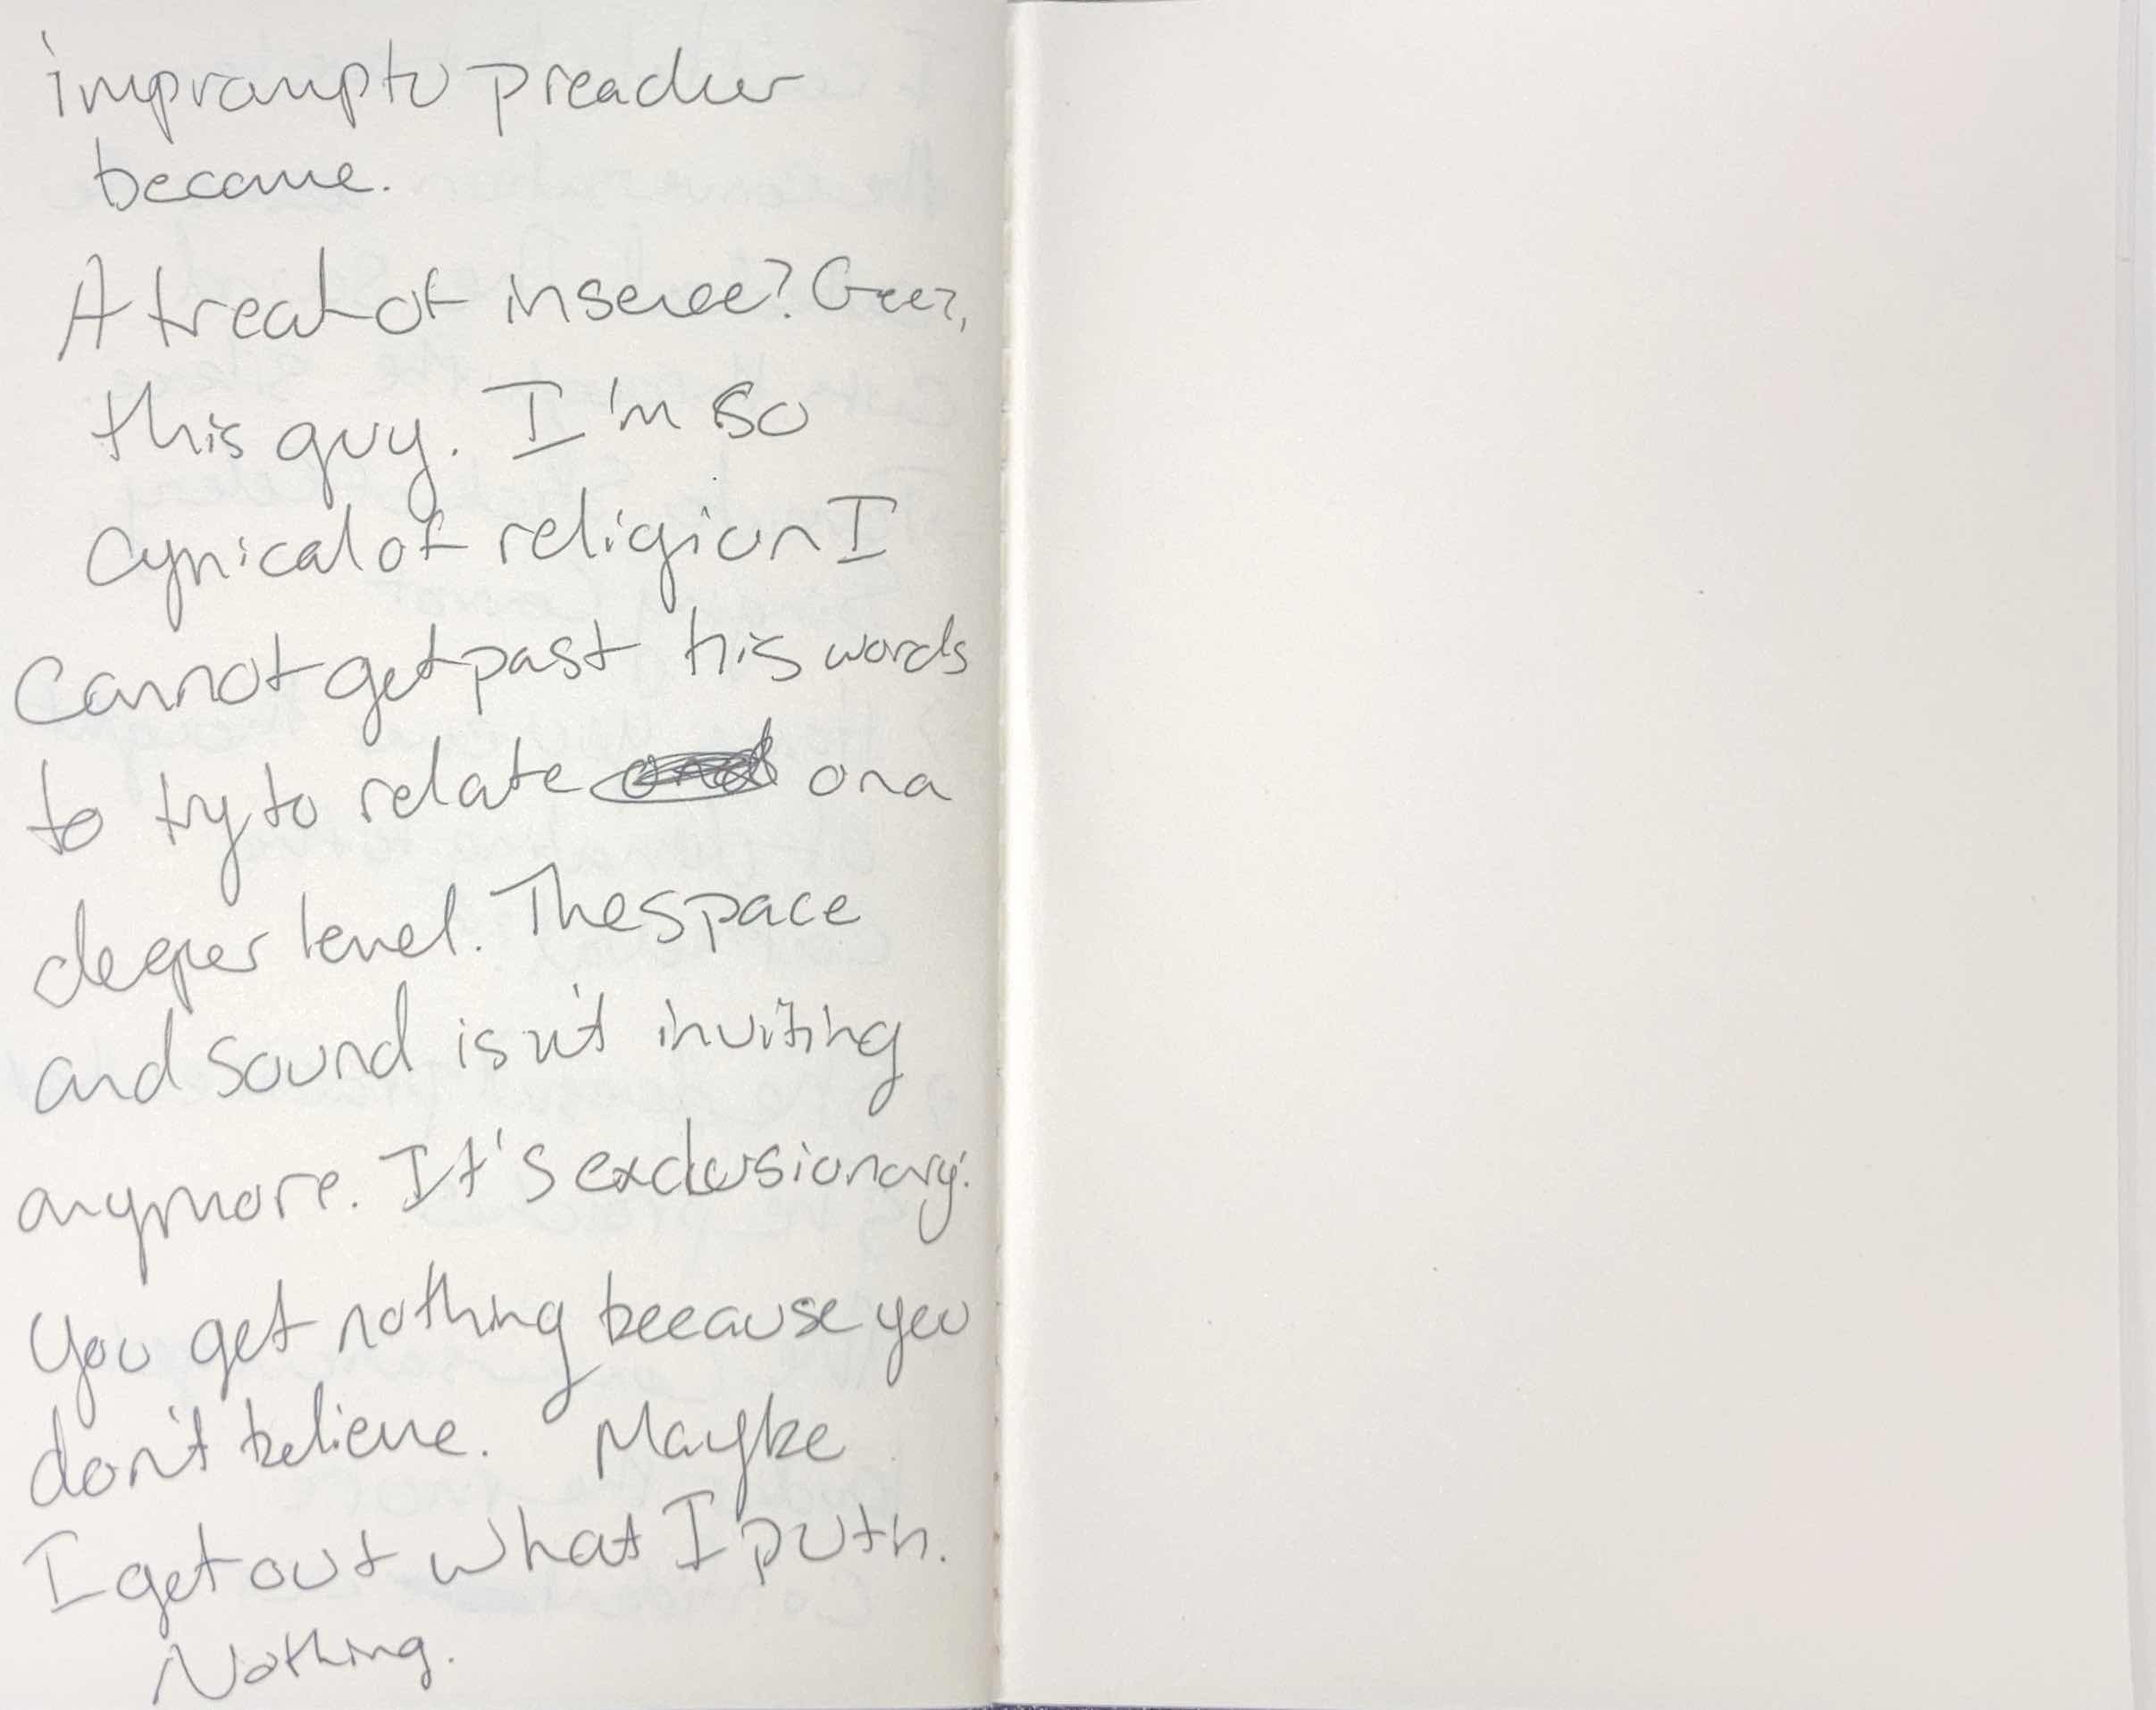 impromptu preacher
became.
A treat of insence? Geez,
this guy. I'm so
cynical of religion I
cannot get past his words
to try to relate on a
deeper level. The space
and sound isn't inviting
anymore. It's exclusionary.
You get nothing because you
don't believe. Maybe
I get out what I put in.
Nothing.